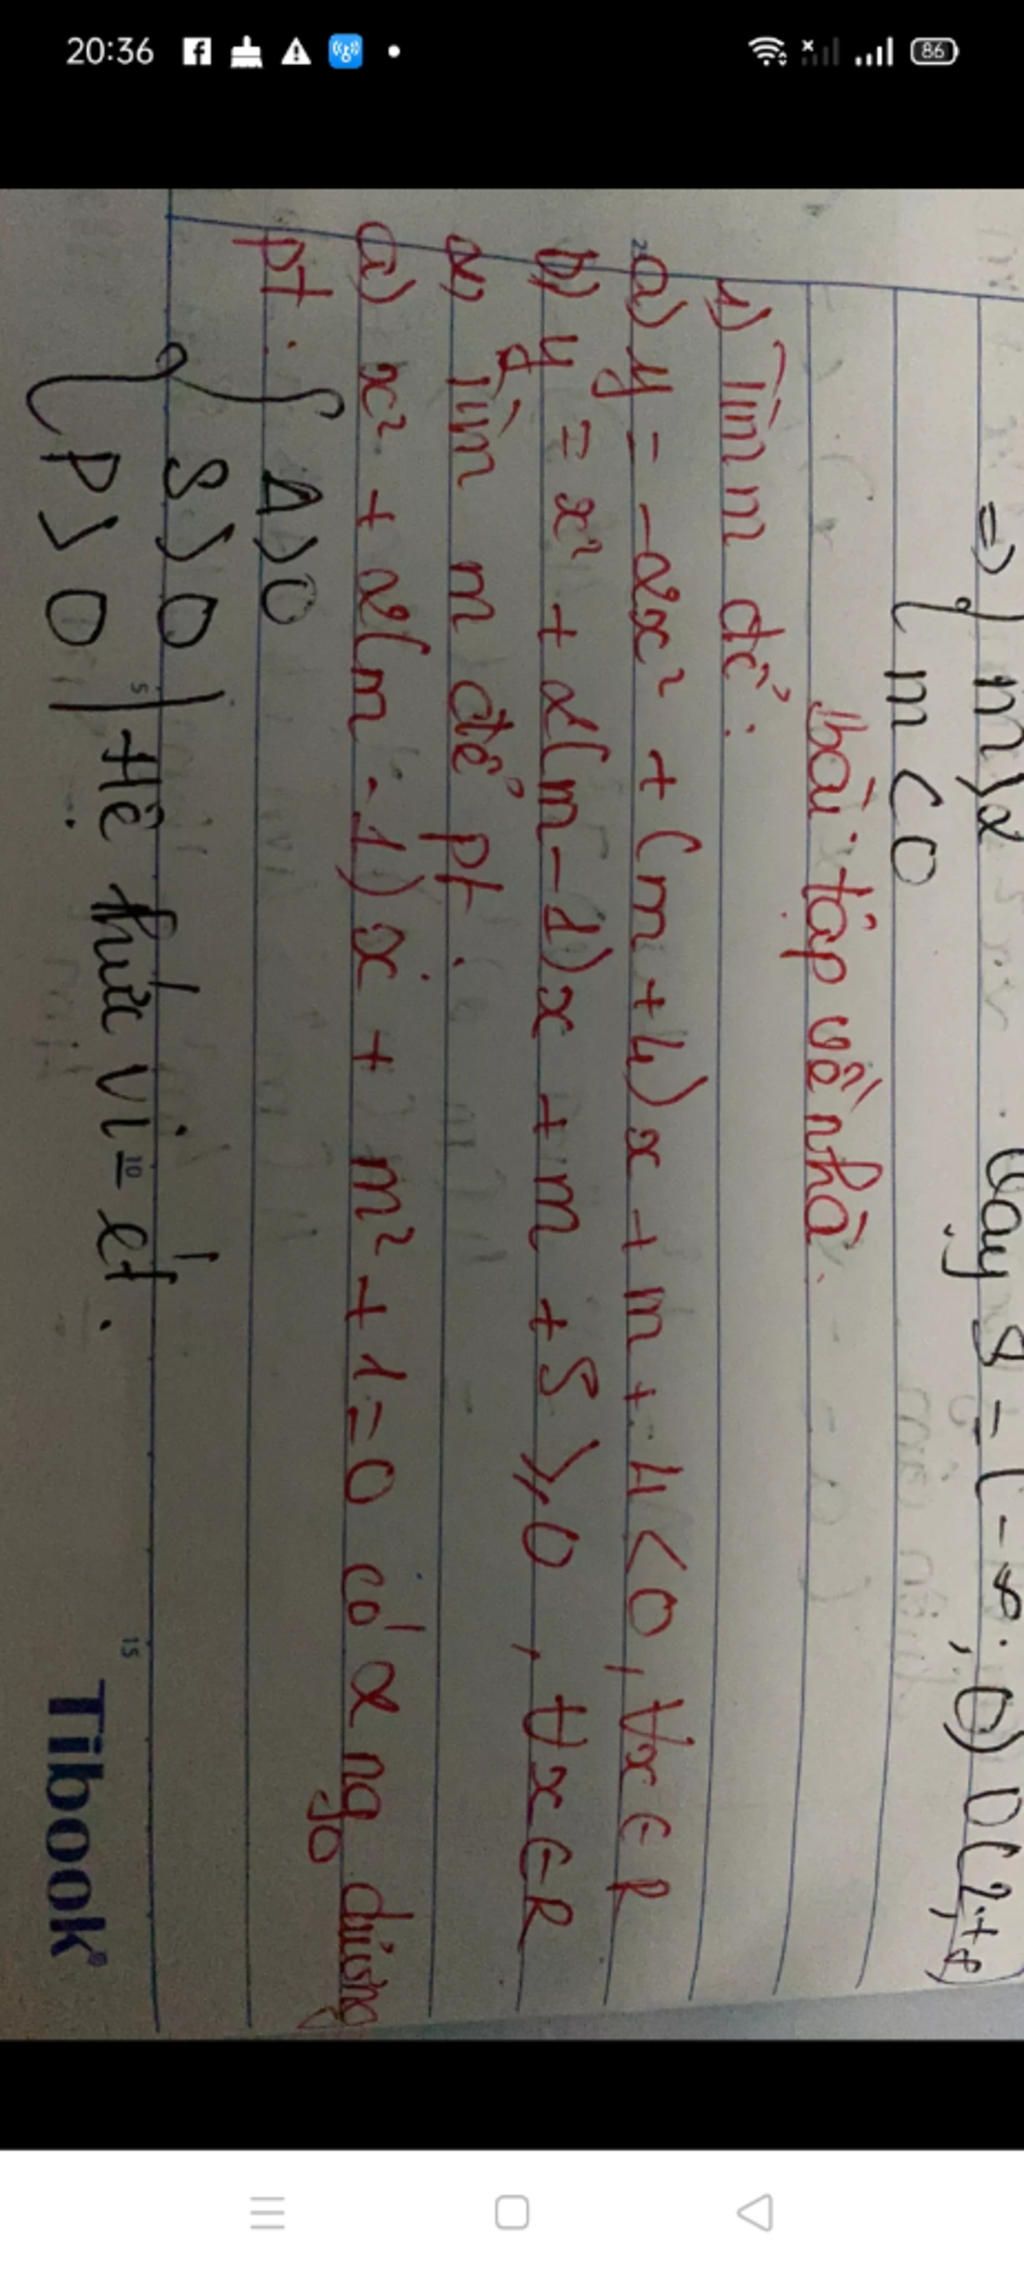 20:36
86
=> { m > 2
m < 0
Vậy S = (-∞; 0) ∪ (2; +∞)
bài tập về nhà
1) Tìm m để:
a) y = -2x² + (m+4)x + m + 4 < 0, ∀x ∈ R
b) y = x² + 2(m-1)x + m + 5 ≥ 0, ∀x ∈ R
2) Tìm m để pt:
a) x² + 2(m-1)x + m² + 1 = 0 có 2 ng dương
pt: { Δ > 0
S > 0
P > 0 | Hệ thức Vi-ét.
5
10
15
Tibook